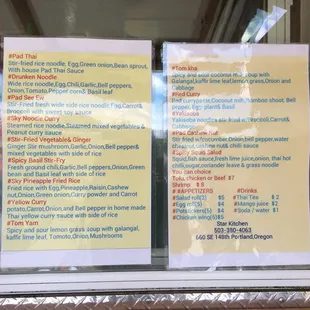 #Pad Thai
Stir-fried rice noodle, Egg,Green onion,Bean sprout,
With house Pad Thai Sauce
#Drunken Noodle
Wide rice noodle, Egg,Chili,Garlic,Bell peppers,
Onion,Tomato,Pepper corn& Basil leaf
#Pad See Ew
Stir-Fried fresh wide side noodle Egg,Carrot,
Broccoli with sweet soy sauce
#Sky Noodle Curry
Steamed rice noodle,Steamed mixed vegetables &
Peanut curry sauce
#Stir-Fried Vegetables & Ginger
Ginger Stir mushroom,Garlic,Onion,Bell pepper&
mixed vegetables with side of rice
#Spicy Basil Stir-Fry
Fresh ground chili,Garlic,Bell peppers,Onion,Green
bean and Basil leaf with side of rice
#Sky Pineapple Fried Rice
Fried rice with Egg,Pineapple,Raisin,Cashew
nut,Onion,Green onion,Curry powder and Carrot
#Yellow Curry
potato,Carrot,Onion,and Bell pepper in home made
Thai yellow curry sauce with side of rice
#Tom Yam
Spicy and sour lemon grass soup with galangal,
kaffir lime leaf, Tomato,Onion,Mushrooms
#Tom kha
Spicy and sour coconut milk soup with
Galangal,kaffir lime leaf,lemon grass,Onion and
Cabbage
#Red Curry
Red curry paste,Coconut milk,bamboo shoot, Bell
pepper, Egg plant& Basil
Yakisoba noodles stir fried with Broccoli,Carrot&
Cabbage
#Pad Cashew Nut
Stir fried with cucumber,Onion,bell pepper,water
chestnut, cashew nut& chili sauce
#Spicy Squid Salad
Squid,fish sauce,fresh lime juice,onion, thai hot
chili,sugar,coriander leave & grass noodle
You can choice
Tofu, chicken or Beef $7
Shrimp $ 8
# APPETIZERS #Drinks
#Salad roll(2) $5 #Thai Tea $ 2
#Egg roll(5) $4 #Mango juice $2
#Potstickers(5) $4 #Soda / water $1
#Chicken wing(5)$5
Star Kitchen
503-380-4063
660 SE 148th Portland,Oregon